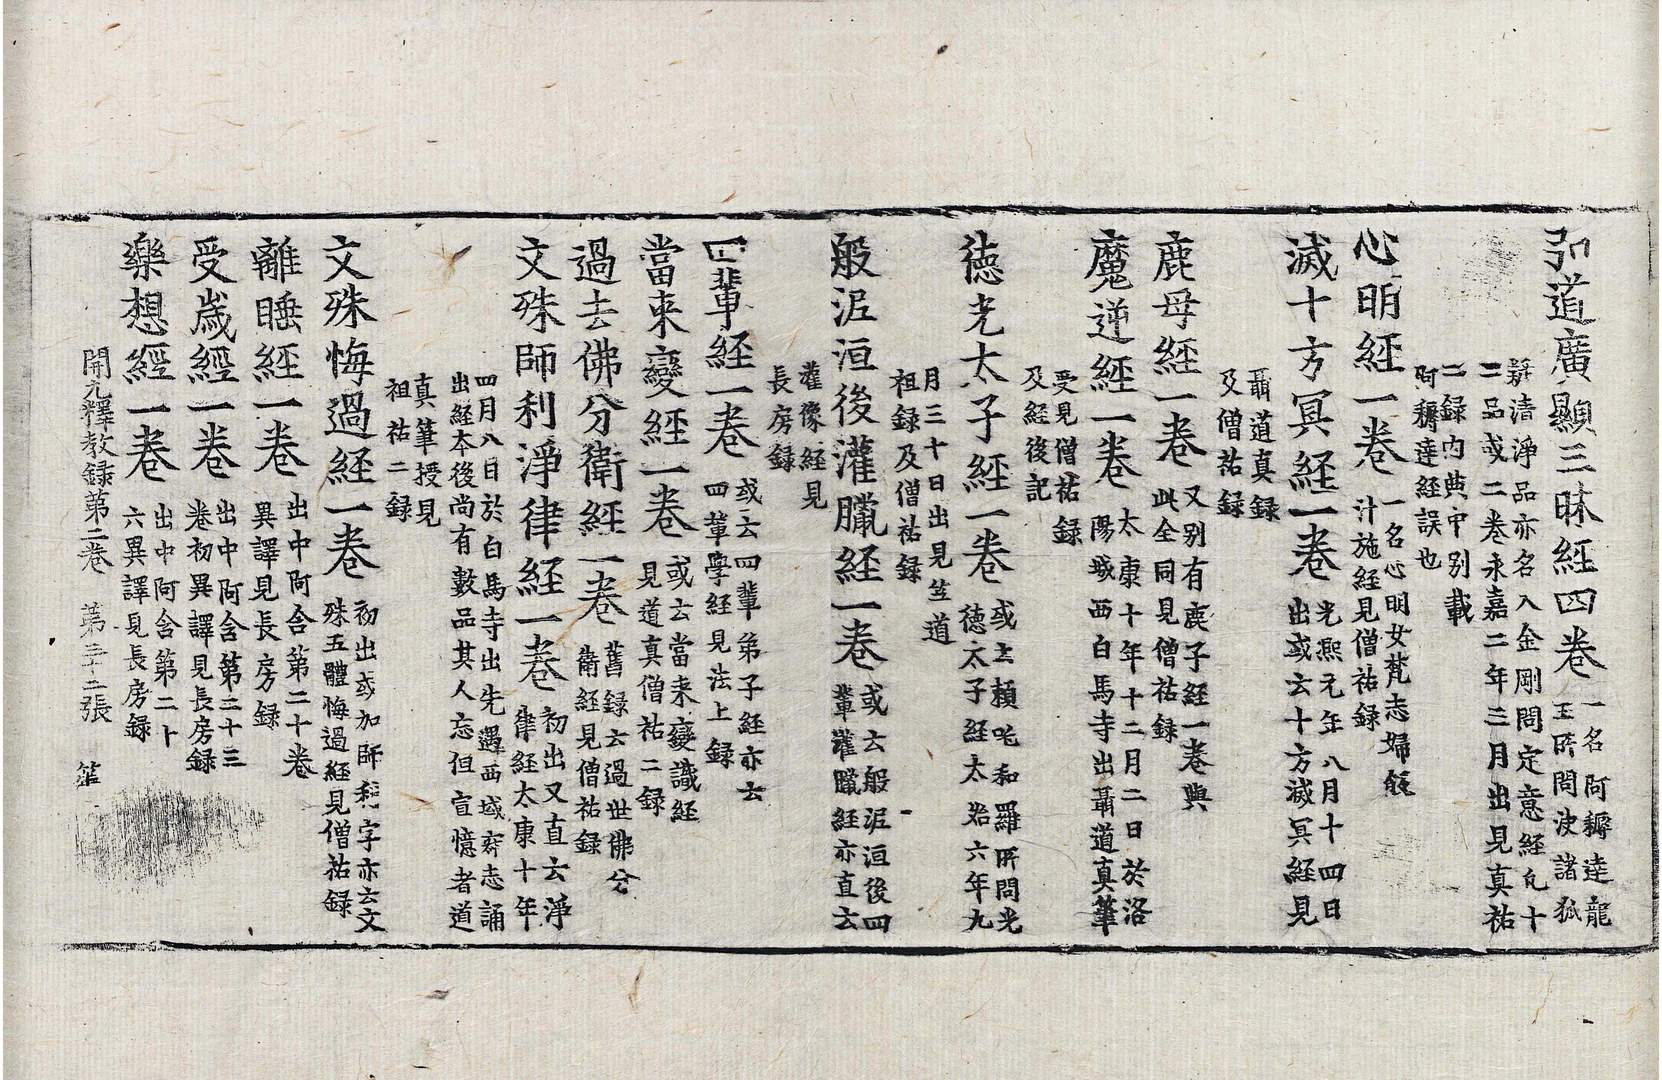 弘道廣顯三昧経四卷 一名阿耨達龍
王所問決諸狐
疑清淨品亦名入金剛問定意經凢十
二品或二卷永嘉二年三月出見真祐
二録内典中别載
阿耨達経誤也
心明経一卷 一名心明女梵志婦飯
汁施経見僧祐録
滅十方冥経一卷 光熙元年八月十四日
出或云十方滅冥経見
聶道真録
及僧祐録
鹿母経一卷 又别有鹿子経一卷與
此全同見僧祐録
魔逆経一卷 太康十年十二月二日於洛
陽城西白馬寺出聶道真筆
受見僧祐録
及経後記
德光太子経一卷 或云頼吒和羅所問光
德太子経太始六年九
月三十日出見竺道
祖録及僧祐録
般泥洹後灌臘経一卷 或云般泥洹後四
輩灌臘経亦直云
灌像経見
長房録
四輩経一卷 或云四輩弟子経亦云
四輩學経見法上録
當来變経一卷 或云當来變識経
見道真僧祐二録
過去佛分衛経一卷 舊録云過世佛分
衛経見僧祐録
文殊師利淨律経一卷 初出又直云淨
律経太康十年
四月八日於白馬寺出先遇西域齊志誦
出経本後尚有數品其人忘但宣憶者道
真筆授見
祖祐二録
文殊悔過経一卷 初出或加師利字亦云文
殊五體悔過経見僧祐録
離睡経一卷 出中阿含第二十卷
異譯見長房録
受歲經一卷 出中阿含第二十三
卷初異譯見長房録
樂想經一卷 出中阿含第二十
六異譯見長房録
開元釋教録第二卷 第三十二張 笙